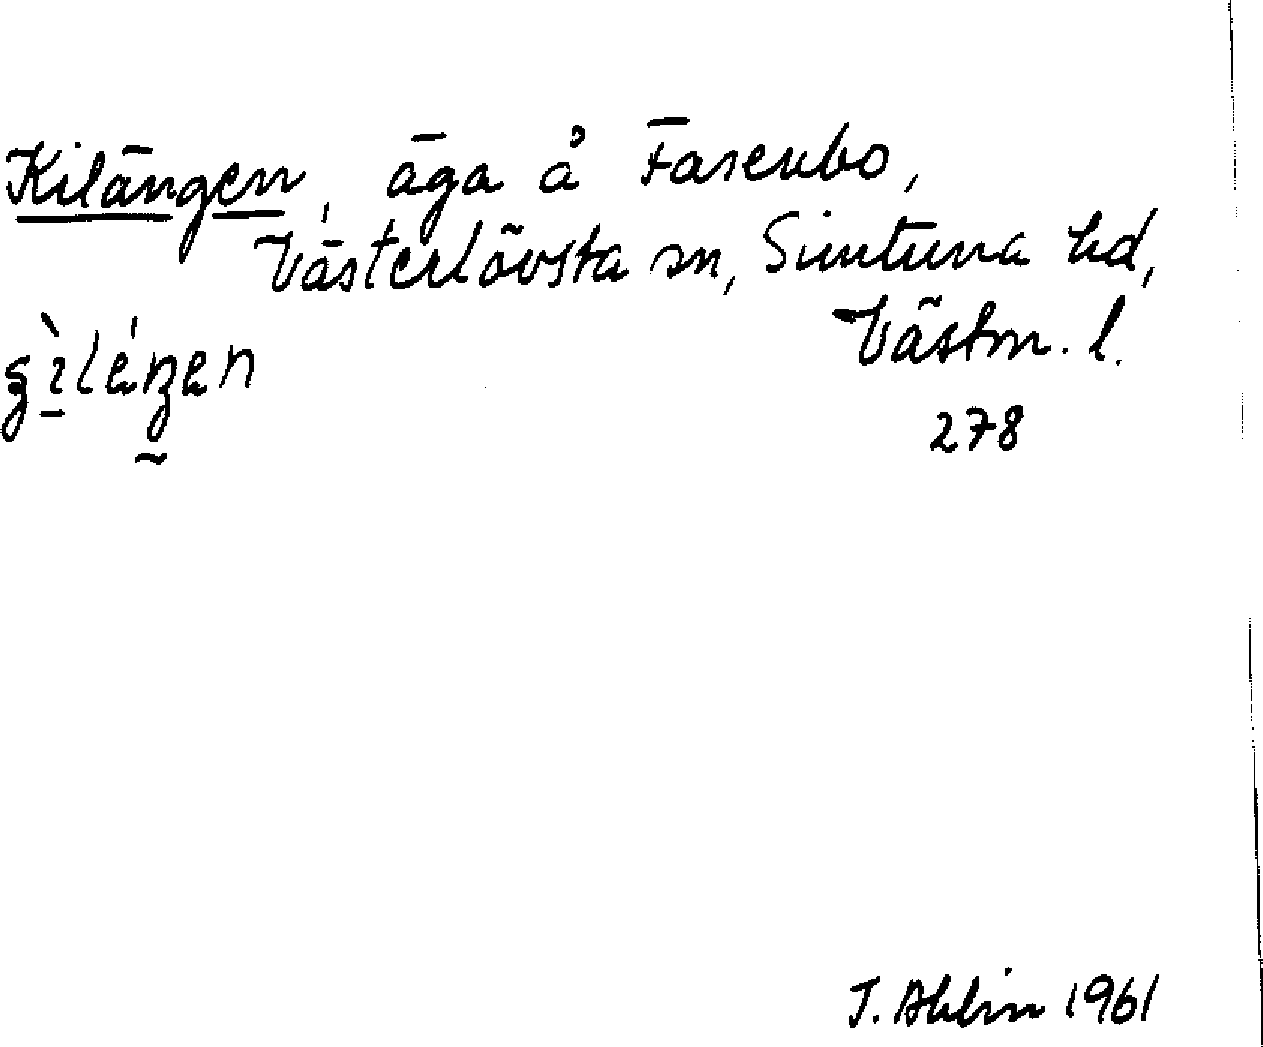 Kilängen, äga å Fasenbo,
Västerlövsta sn, Simtuna hd,
Västm. l.
278
J. Ahlin 1961